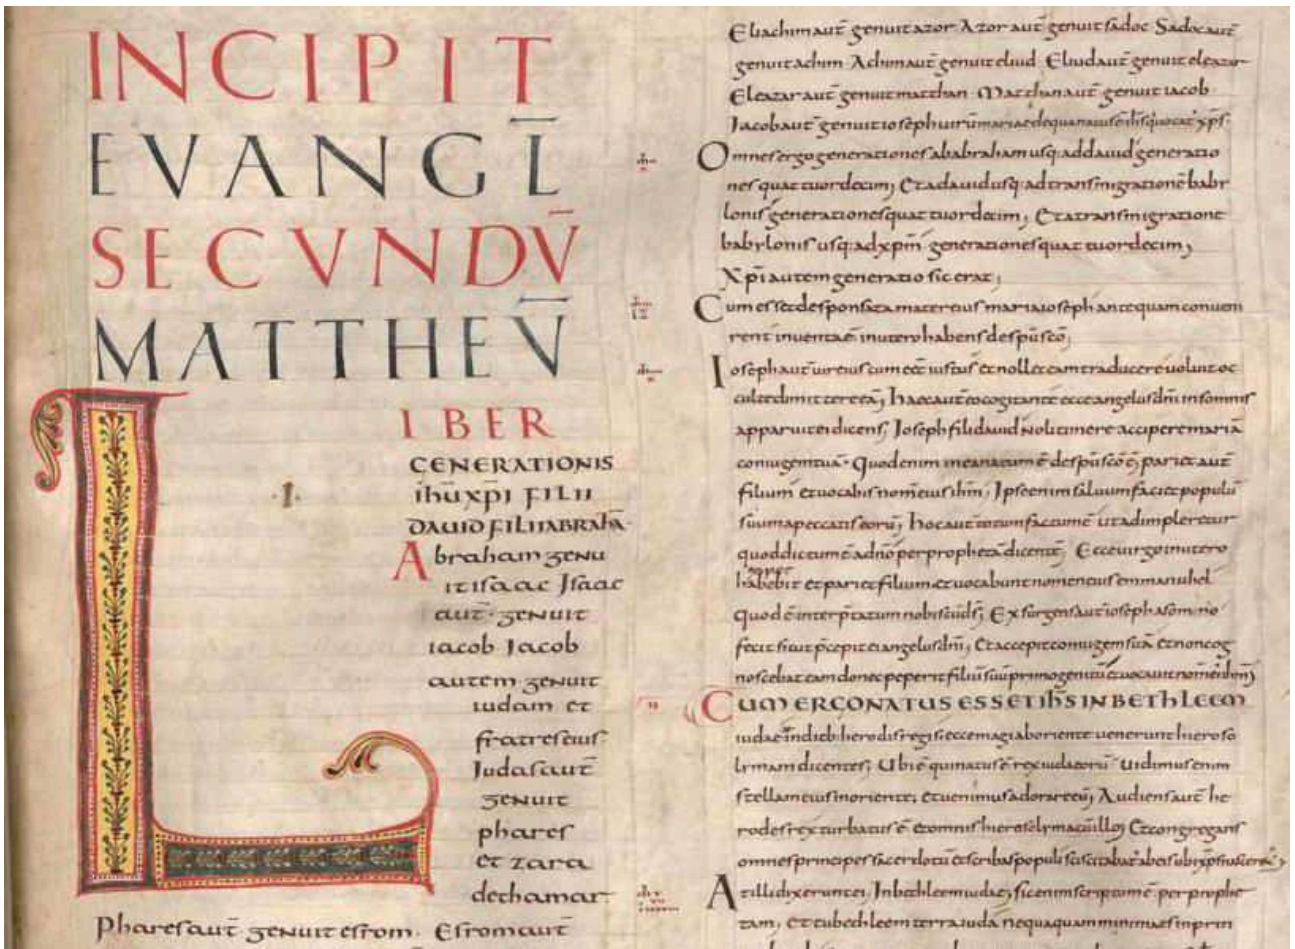 INCIPIT
EVANGL̅
SECVNDV̅
MATTHEV̅
LIBER
GENERATIONIS
ihu xpi FILII
DAVID FILII ABRAHA
·I·
Abraham genu
it isaac Isaac
aut̅ · genuit
iacob Iacob
autem · genuit
iudam et
fratres eius ·
Iudas aut̅
genuit
phares
et zara
dethamar
Phares aut̅ genuit esrom · Esrom aut̅
Eliachim aut̅ genuit azor Azor aut̅ genuit sadoc Sadoc aut̅
genuit achim · Achim aut̅ genuit eliud · Eliud aut̅ genuit eleazar
Eleazar aut̅ genuit matthan · Matthan aut̅ genuit iacob ·
Iacob aut̅ genuit ioseph uiru̅ mariae de qua natus e̅ ih̅s qui uocat̅ xp̅s ·
Omnes ergo generationes ab abraham usq: ad dauid generatio
nes quattuordecim; Et a dauid usq: ad transmigratione̅ baby
lonis generationes quattuordecim; Et a transmigratione
babylonis usq: ad xpm̅ generationes quattuordecim;
Xpi̅ autem generatio sic erat;
Cum esset desponsata mater eius maria ioseph antequam conueni
rent inuenta e̅ in utero habens de sp̅u sc̅o;
Ioseph aut̅ uir eius cum ee̅t iustus et nollet eam traducere uoluit oc
culte dimittere ea̅; haec aut̅ eo cogitante ecce angelus dn̅i in somnis
apparuit ei dicens; Ioseph fili dauid noli timere accipere maria̅
coniugem tua̅ · Quod enim in ea natum e̅ de sp̅u sc̅o e̅; pariet aut̅
filium et uocabis nom̅ eius ih̅m; Ipse enim saluum faciet populu̅
suum a peccatis eoru̅; hoc aut̅ totum factum e̅ ut adimpleretur
quod dictum e̅ a dn̅o per propheta̅ dicente̅; Ecce uirgo in utero
habebit et pariet filium et uocabunt nomen eius emmanuhel
quod e̅ interp̅tatum nobiscu̅ d̅s; Exsurgens aut̅ ioseph a somno
fecit sicut p̅cepit ei angelus dn̅i; Et accepit coniugem sua̅ et non cog
noscebat eam donec peperit filiu̅ suu̅ primogenitu̅ et uocauit nom̅ ei ih̅m;
CUM ERGO NATUS ESSET ih̅s IN BETHLEEM
iudae in dieb: herodis regis ecce magi ab oriente uenerunt hieroso
lymam dicentes; Ubi e̅ qui natus e̅ rex iudaeoru̅ · Uidimus enim
stellam eius in oriente; et uenimus adorare eu̅; Audiens aut̅ he
rodes rex turbatus e̅ et omnis hierosolyma cu̅ illo; Et congregans
omnes principes sacerdotu̅ et scribas populi sciscitabat̅ ab eis ubi xp̅s nasceret̅;
At illi dixerunt ei; In bethleem iudae; sic enim scriptum e̅ per prophe
tam; Et tu bethleem terra iuda nequaquam minima es in prin